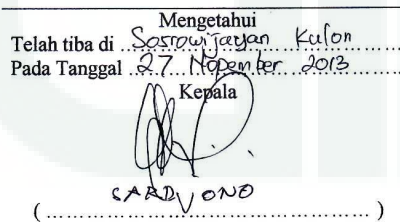 Mengetahui
Telah tiba di Sosrowijayan Kulon
Pada Tanggal 27 Nopember 2013
Kepala
SARDJONO
(........................................................)